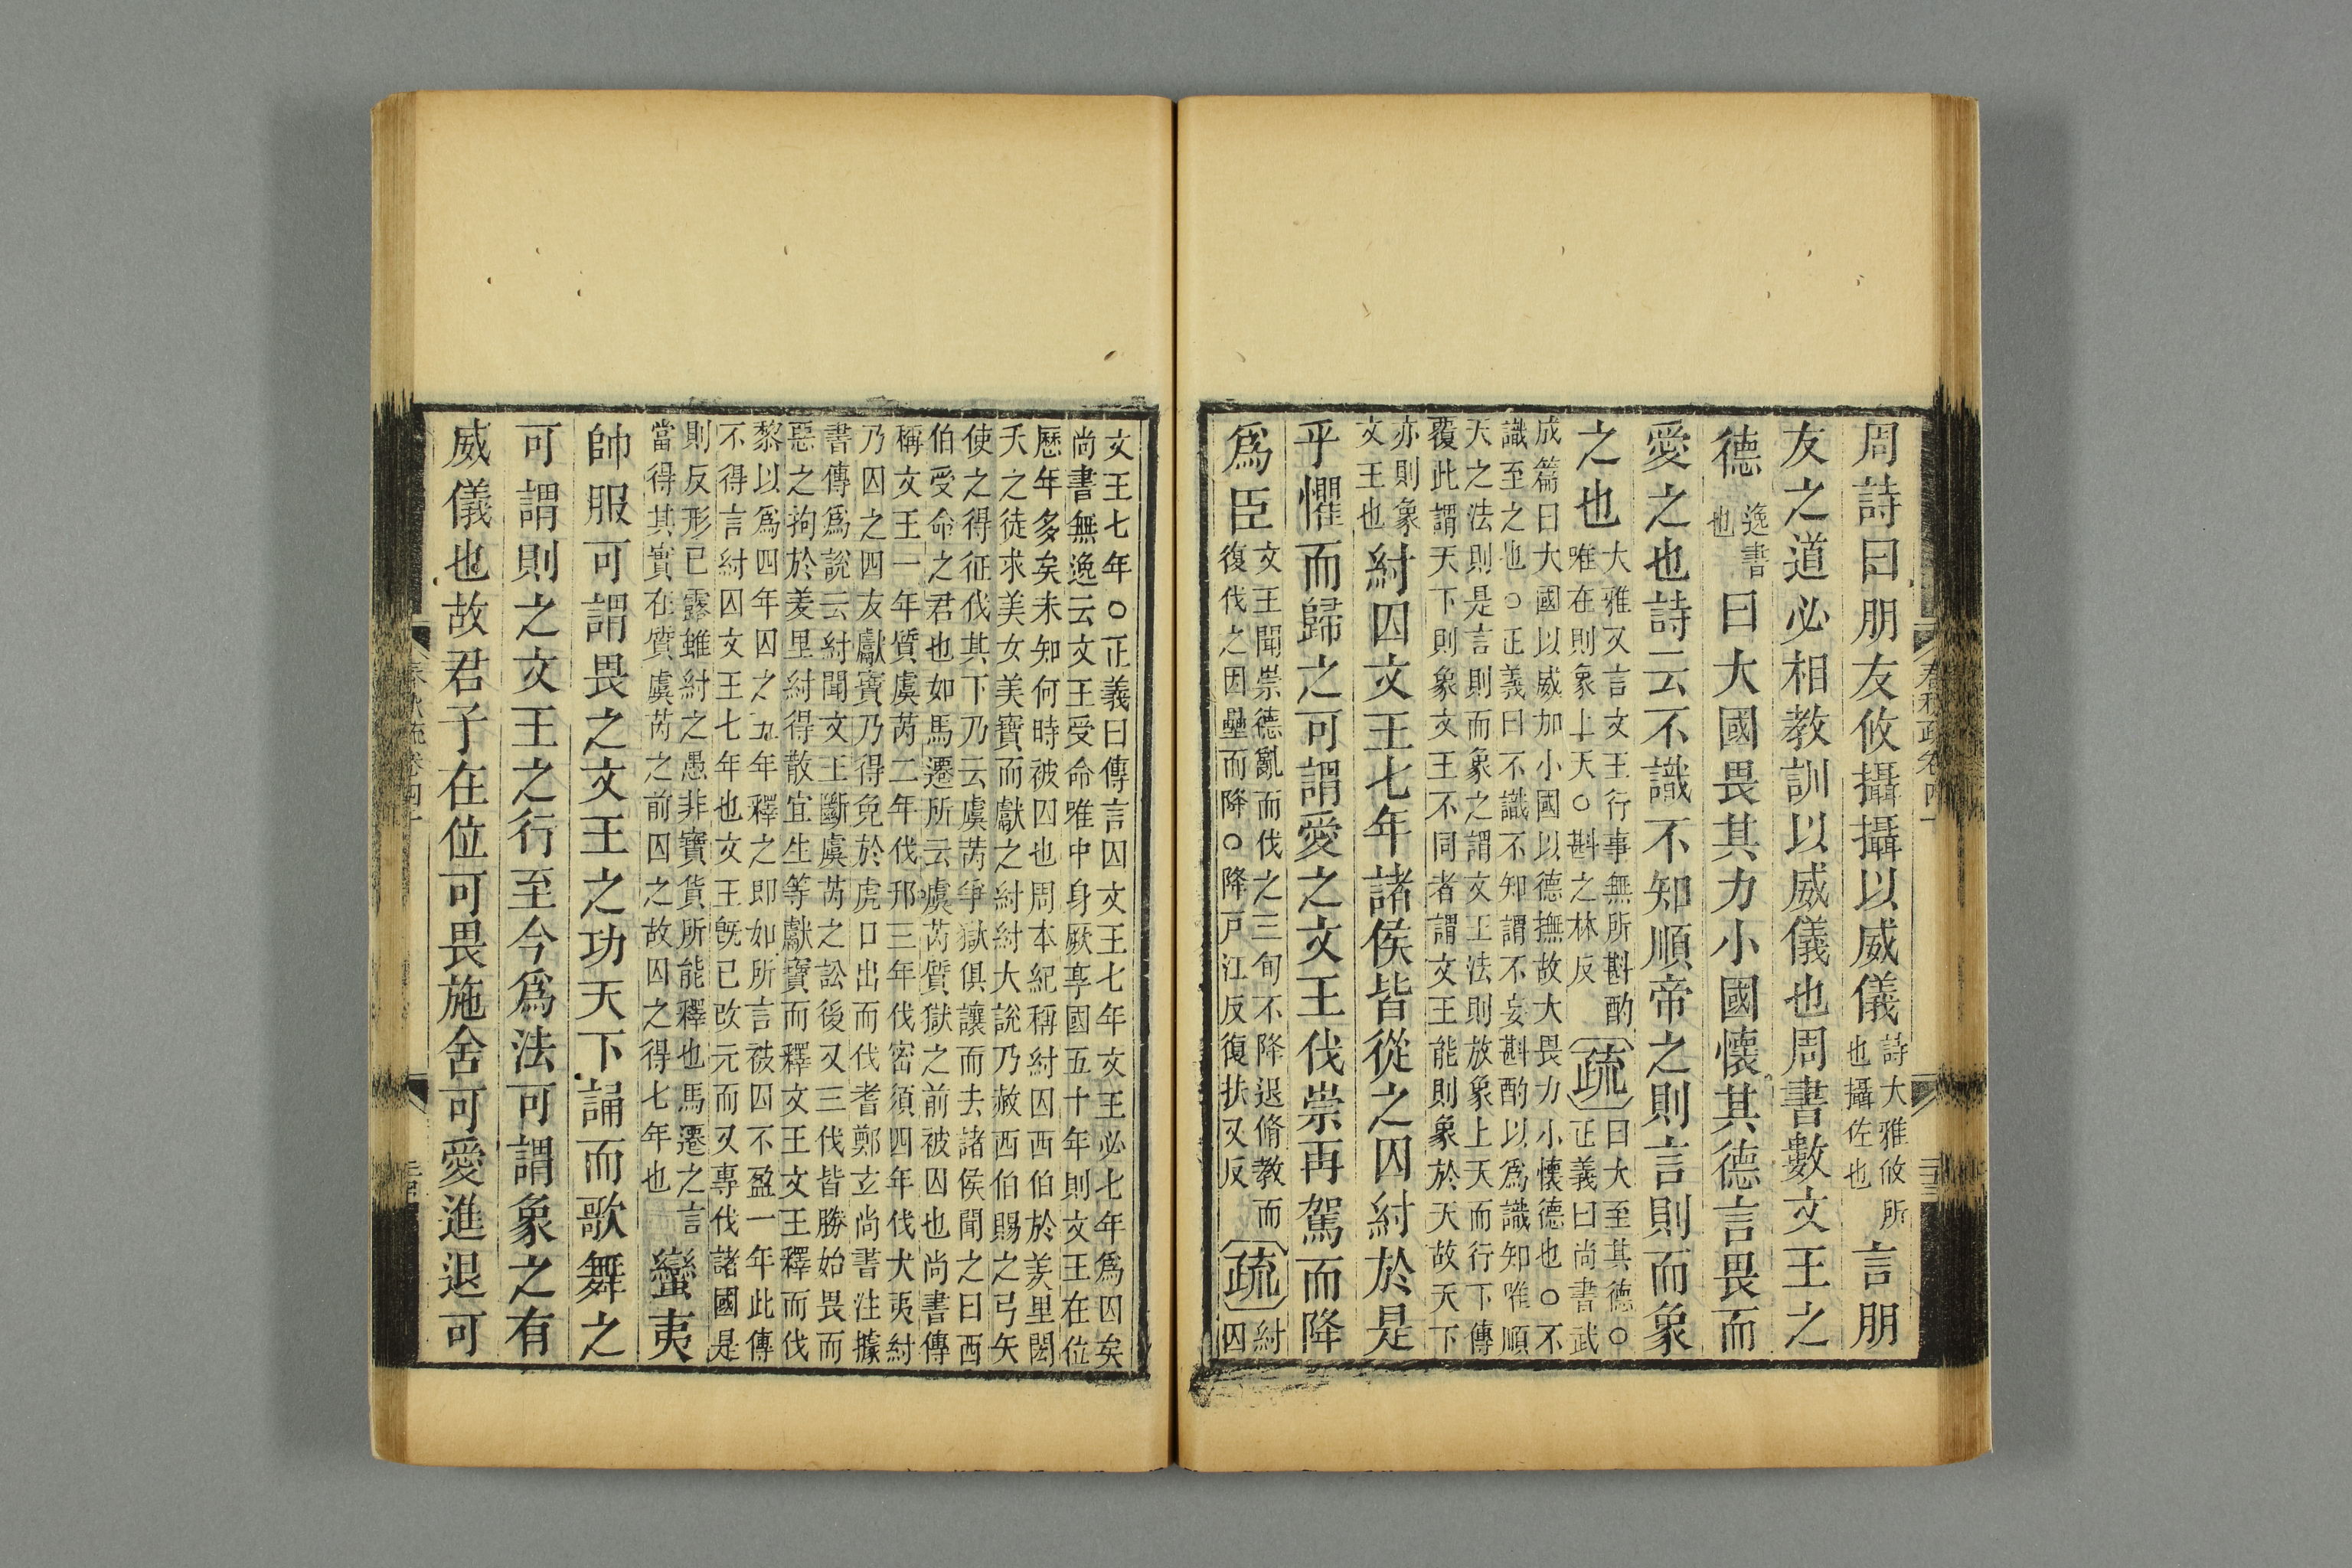 周詩曰朋友攸攝攝以威儀 詩大雅攸所 也攝佐也 言朋
友之道必相教訓以威儀也周書數文王之
德 逸書 也 曰大國畏其力小國懷其德言畏而
愛之也詩云不識不知順帝之則言則而象
之也 大雅又言文王行事無所斟酌 唯在則象上天○斟之林反 疏 曰大至其德○ 正義曰尚書武
成篇曰大國以威加小國以德撫故大畏力小懷德也○不
識至之也○正義曰不識不知謂不妄斟酌以爲識知唯順
天之法則是言則而象之謂文王法則放象上天而行下傳
覆此謂天下則象文王不同者謂文王能則象於天故天下
亦則象
文王也
紂囚文王七年諸侯皆從之囚紂於是
乎懼而歸之可謂愛之文王伐崇再駕而降
爲臣 文王聞崇德亂而伐之三旬不降退脩教而 復伐之因壘而降○降戸江反復扶又反 疏 紂 囚
文王七年○正義曰傳言囚文王七年文王必七年爲囚矣
尚書無逸云文王受命唯中身厥享國五十年則文王在位
歷年多矣未知何時被囚也周本紀稱紂囚西伯於羑里閎
夭之徒求美女美寶而獻之紂紂大說乃赦西伯賜之弓矢
使之得征伐其下乃云虞芮爭獄俱讓而去諸侯聞之曰西
伯受命之君也如馬遷所云虞芮質獄之前被囚也尚書傳
稱文王一年質虞芮二年伐邘三年伐密須四年伐犬夷紂
乃囚之四友獻寶乃得免於虎口出而伐耆鄭玄尚書注據
書傳爲說云紂聞文王斷虞芮之訟後又三伐皆勝始畏而
惡之拘於羑里紂得散宜生等獻寶而釋文王文王釋而伐
黎以爲四年囚之五年釋之即如所言被囚不盈一年此傳
不得言紂囚文王七年也文王旣已改元而又專伐諸國是
則反形已露雖紂之愚非寶貨所能釋也馬遷之言
當得其實在質虞芮之前囚之故囚之得七年也
蠻夷
帥服可謂畏之文王之功天下誦而歌舞之
可謂則之文王之行至今爲法可謂象之有
威儀也故君子在位可畏施舍可愛進退可